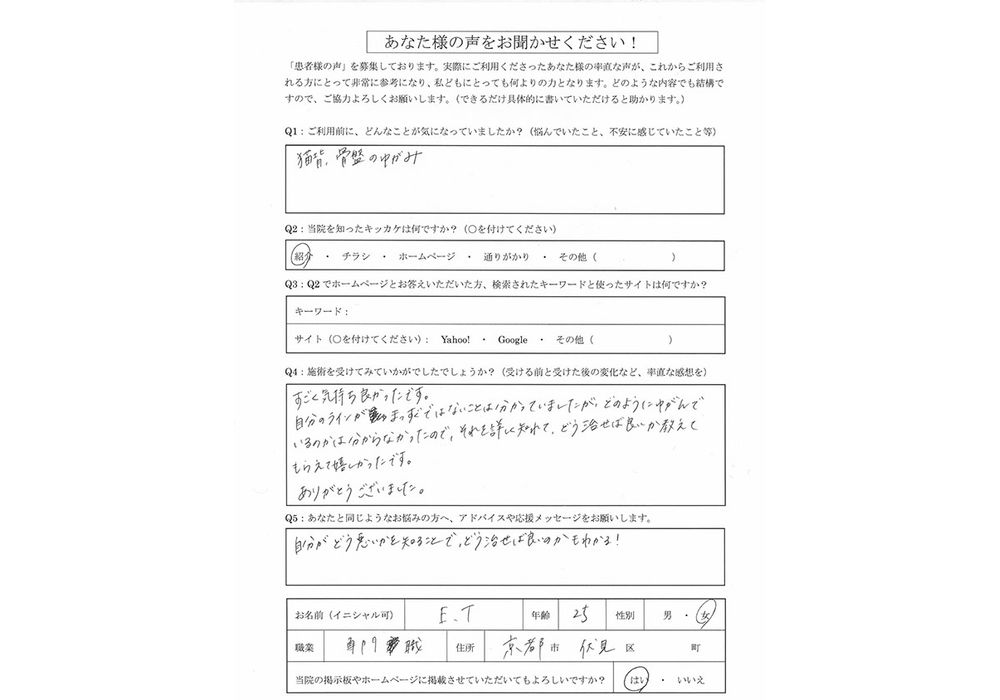 あなた様の声をお聞かせください！
「患者様の声」を募集しております。実際にご利用くださったあなた様の率直な声が、これからご利用さ
れる方にとって非常に参考になり、私どもにとっても何よりの力となります。どのような内容でも結構で
すので、ご協力よろしくお願いします。（できるだけ具体的に書いていただけると助かります。）
Q1：ご利用前に、どんなことが気になっていましたか？（悩んでいたこと、不安に感じていたこと等）
猫背、骨盤のゆがみ
Q2：当院を知ったキッカケは何ですか？（〇を付けてください）
紹介 ・ チラシ ・ ホームページ ・ 通りがかり ・ その他（ ）
Q3：Q2でホームページとお答えいただいた方、検索されたキーワードと使ったサイトは何ですか？
キーワード：
サイト（〇を付けてください）： Yahoo! ・ Google ・ その他（ ）
Q4：施術を受けてみていかがでしたでしょうか？（受ける前と受けた後の変化など、率直な感想を）
すごく気持ち良かったです。
自分のラインがまっすぐではないことは分かっていましたが、どのようにゆがんで
いるのかは分からなかったので、それを詳しく知れて、どう治せば良いか教えて
もらえて嬉しかったです。
ありがとうございました。
Q5：あなたと同じようなお悩みの方へ、アドバイスや応援メッセージをお願いします。
自分がどう悪いかを知ることで、どう治せば良いのかもわかる！
お名前（イニシャル可） E.T 年齢 25 性別 男 ・ 女
職業 専門職 住所 京都市 伏見区 町
当院の掲示板やホームページに掲載させていただいてもよろしいですか？ はい ・ いいえ